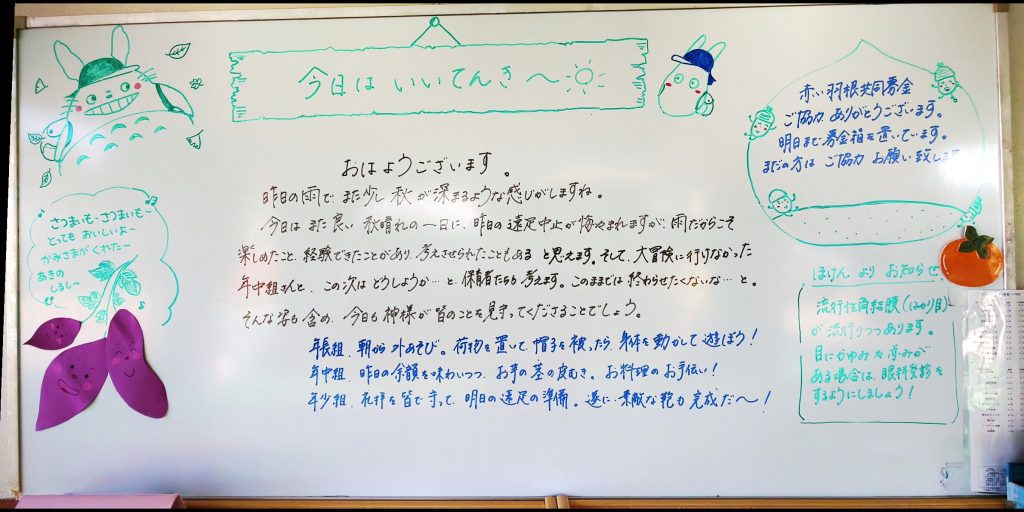 今日は いいてんき～
おはようございます。
昨日の雨で、また少し 秋が深まるような感じがしますね。
今日は また良い 秋晴れの一日に、昨日の遠足中止が悔やまれますが、雨だからこそ
楽しめたこと、経験できたことがあり、考えさせられたこともある と思えます。そして、大冒険に行けなかった
年中組さんと、この次は どうしようか…と、保育者たちも 考えます。このままでは 終わらせたくないな… と。
そんな姿も 含め、今日も 神様が 皆のことを見守ってくださることでしょう。
年長組、朝から 外あそび。荷物を置いて、帽子を 被ったら、身体を動かして 遊ぼう！
年中組、昨日の余韻を味わいつつ、お芋の茎の皮むき。お料理のお手伝い！
年少組、礼拝を皆で守って、明日の遠足の準備。遂に、素敵な鞄も 完成だ～！
さつまいも～さつまいも～
とっても おいしいよ～
かみさまがくれた～
あきの
しるし～
赤い羽根共同募金
ご協力 ありがとうございます。
明日まで 募金箱を置いています。
まだの方は ご協力 お願い致します
ほけん より お知らせ
流行性角結膜(はやり目)
が 流行りつつあります。
目にかゆみや赤みが
ある場合は、眼科受診を
するようにしましょう！